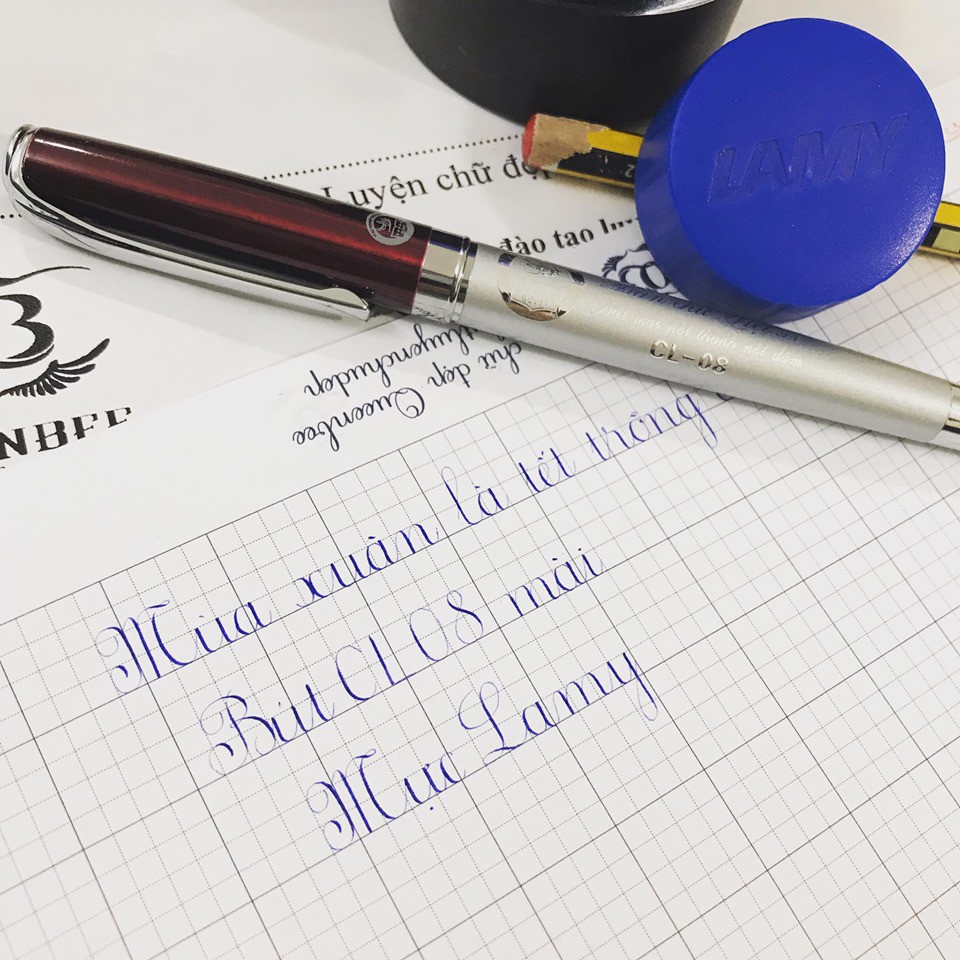 Luyện chữ đẹp
đào tạo luy
LAMY
CL-08
NBEE
chữ đẹp Queenbee
luyenchudep
Mùa xuân là tết trồng
Bút Cl 08 mài
Mực Lamy